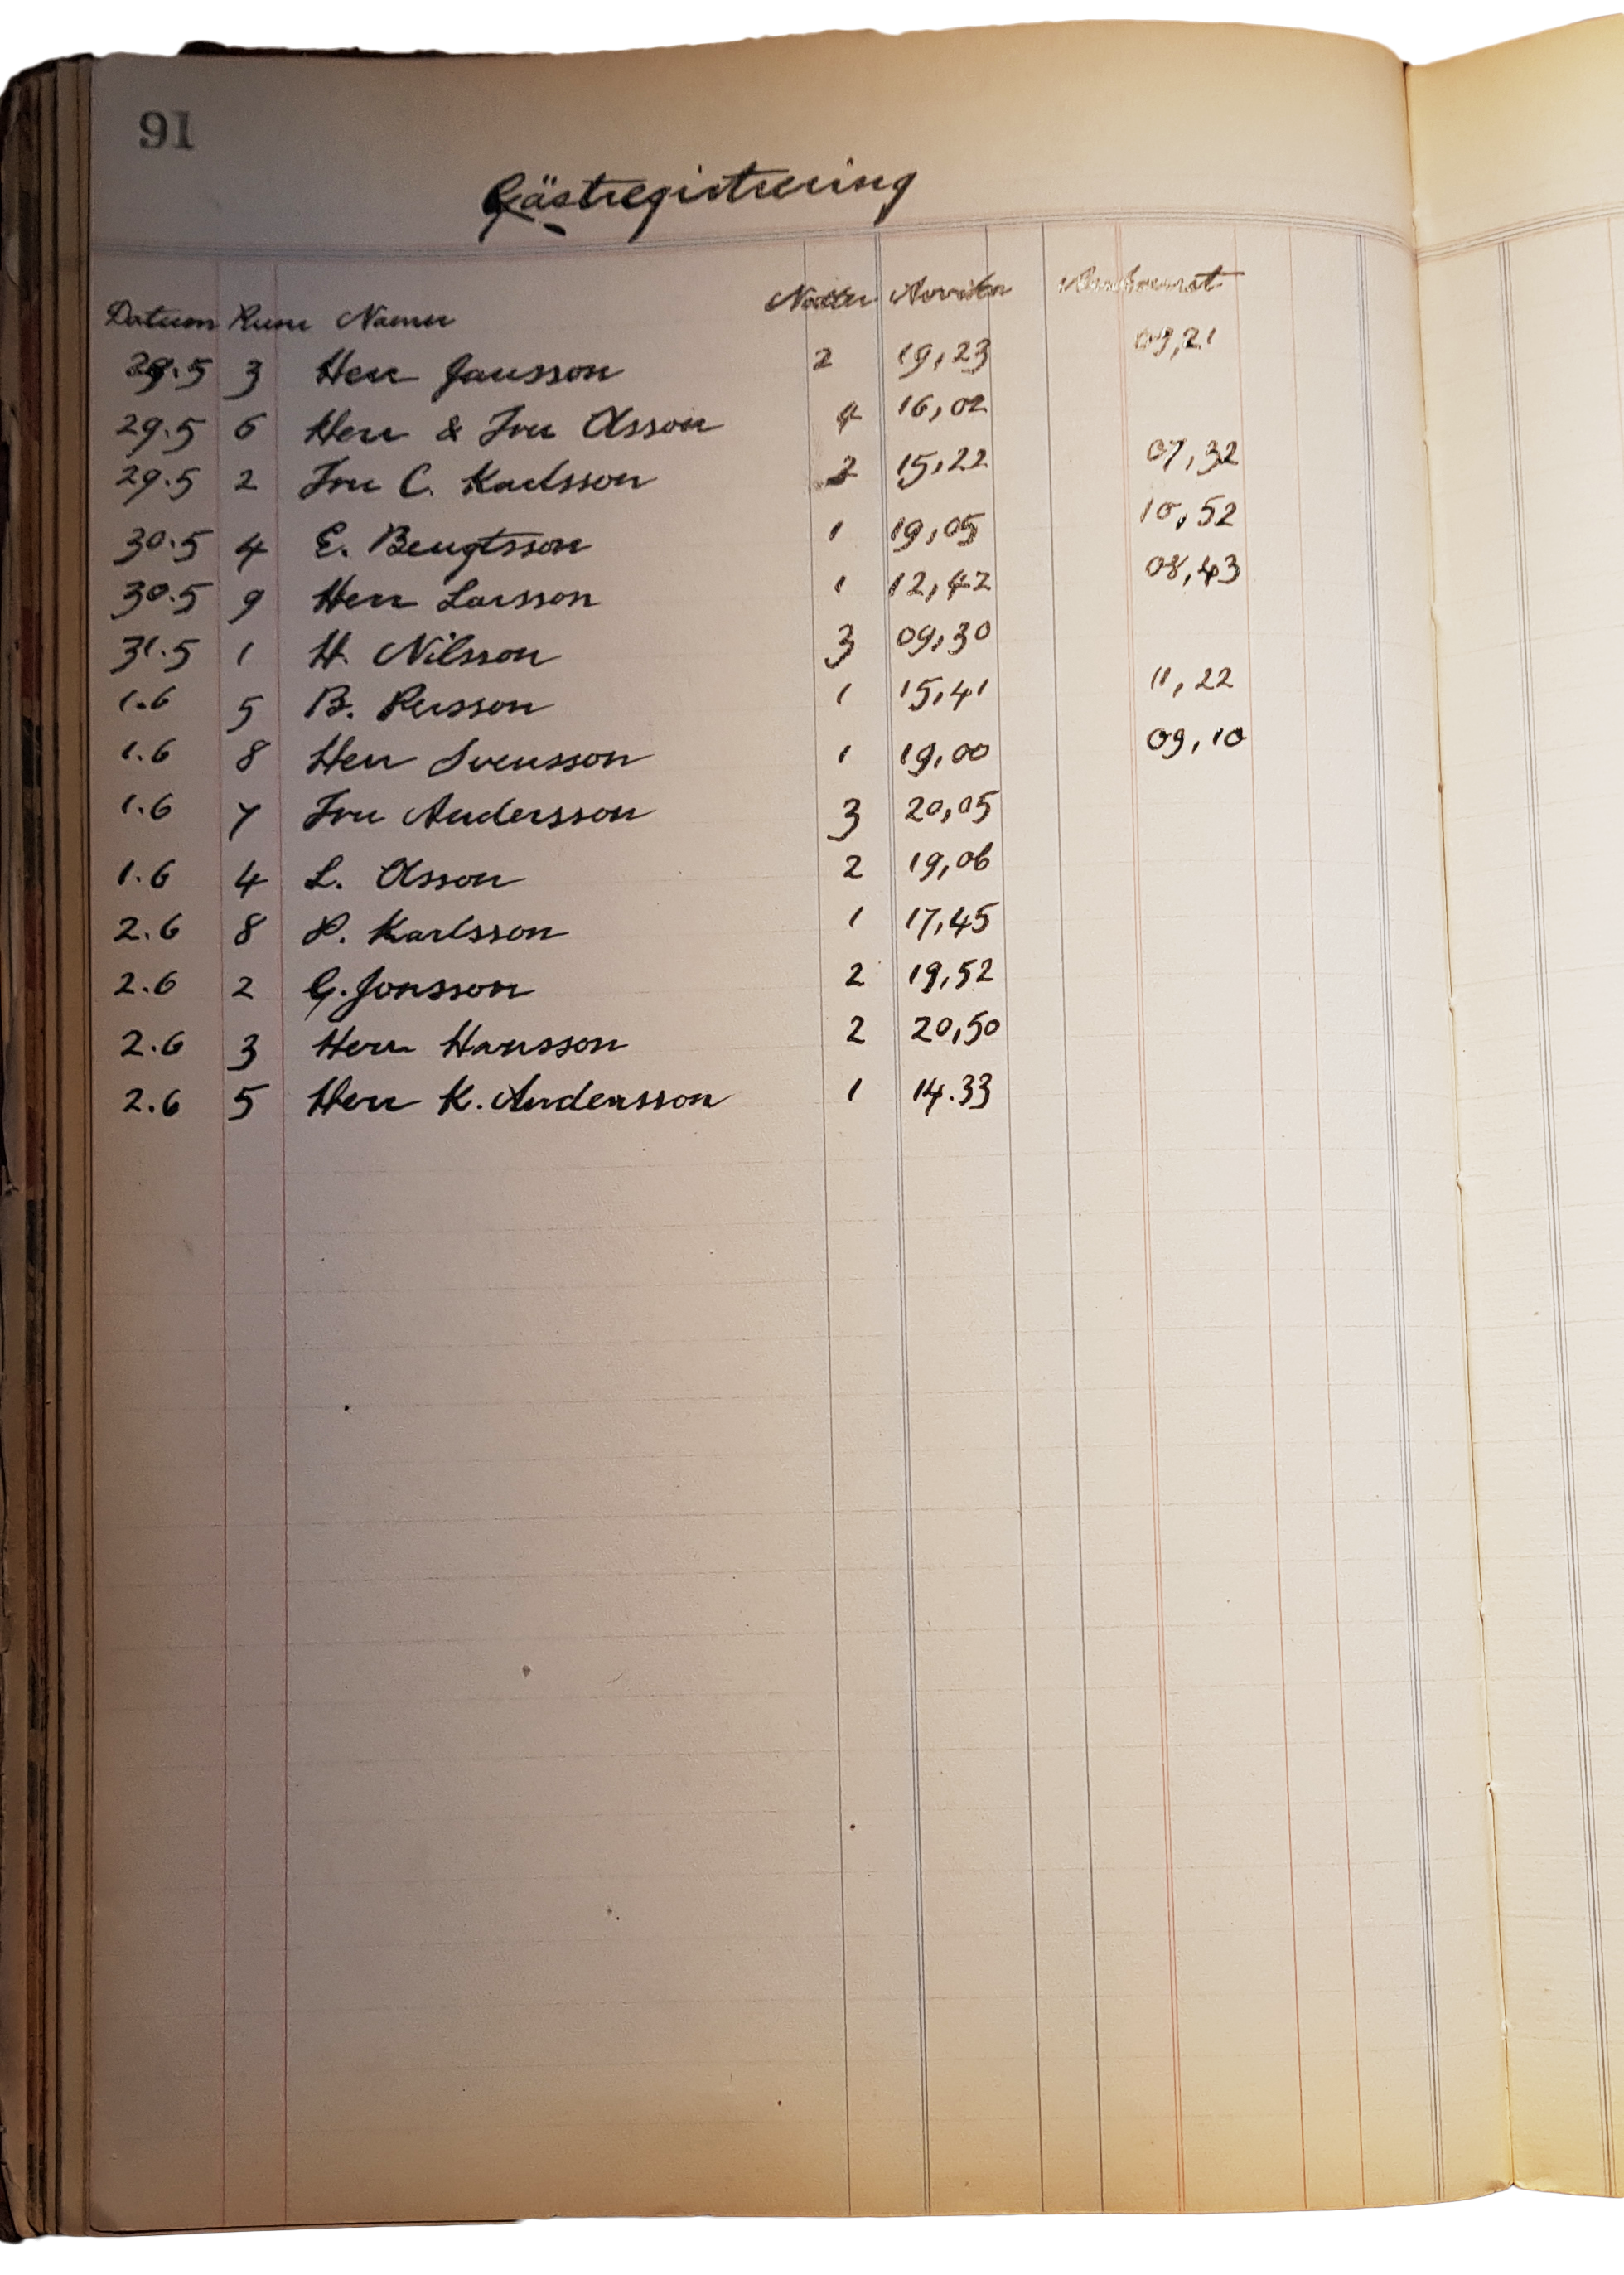 91
Gästregistrering
Datum Rum Namn Nätter
29.5 3 Herr Jansson 2 19,23 09,21
29.5 6 Herr & Fru Olsson 4 16,02
29.5 2 Fru C. Karlsson 2 15,22 07,32
30.5 4 E. Bengtsson 1 19,05 10,52
30.5 9 Herr Larsson 1 12,42 08,43
31.5 1 H. Nilsson 3 09,30
1.6 5 B. Persson 1 15,41 11,22
1.6 8 Herr Svensson 1 19,00 09,10
1.6 7 Fru Andersson 3 20,05
1.6 4 L. Olsson 2 19,06
2.6 8 P. Karlsson 1 17,45
2.6 2 G. Jonsson 2 19,52
2.6 3 Herr Hansson 2 20,50
2.6 5 Herr K. Andersson 1 14.33